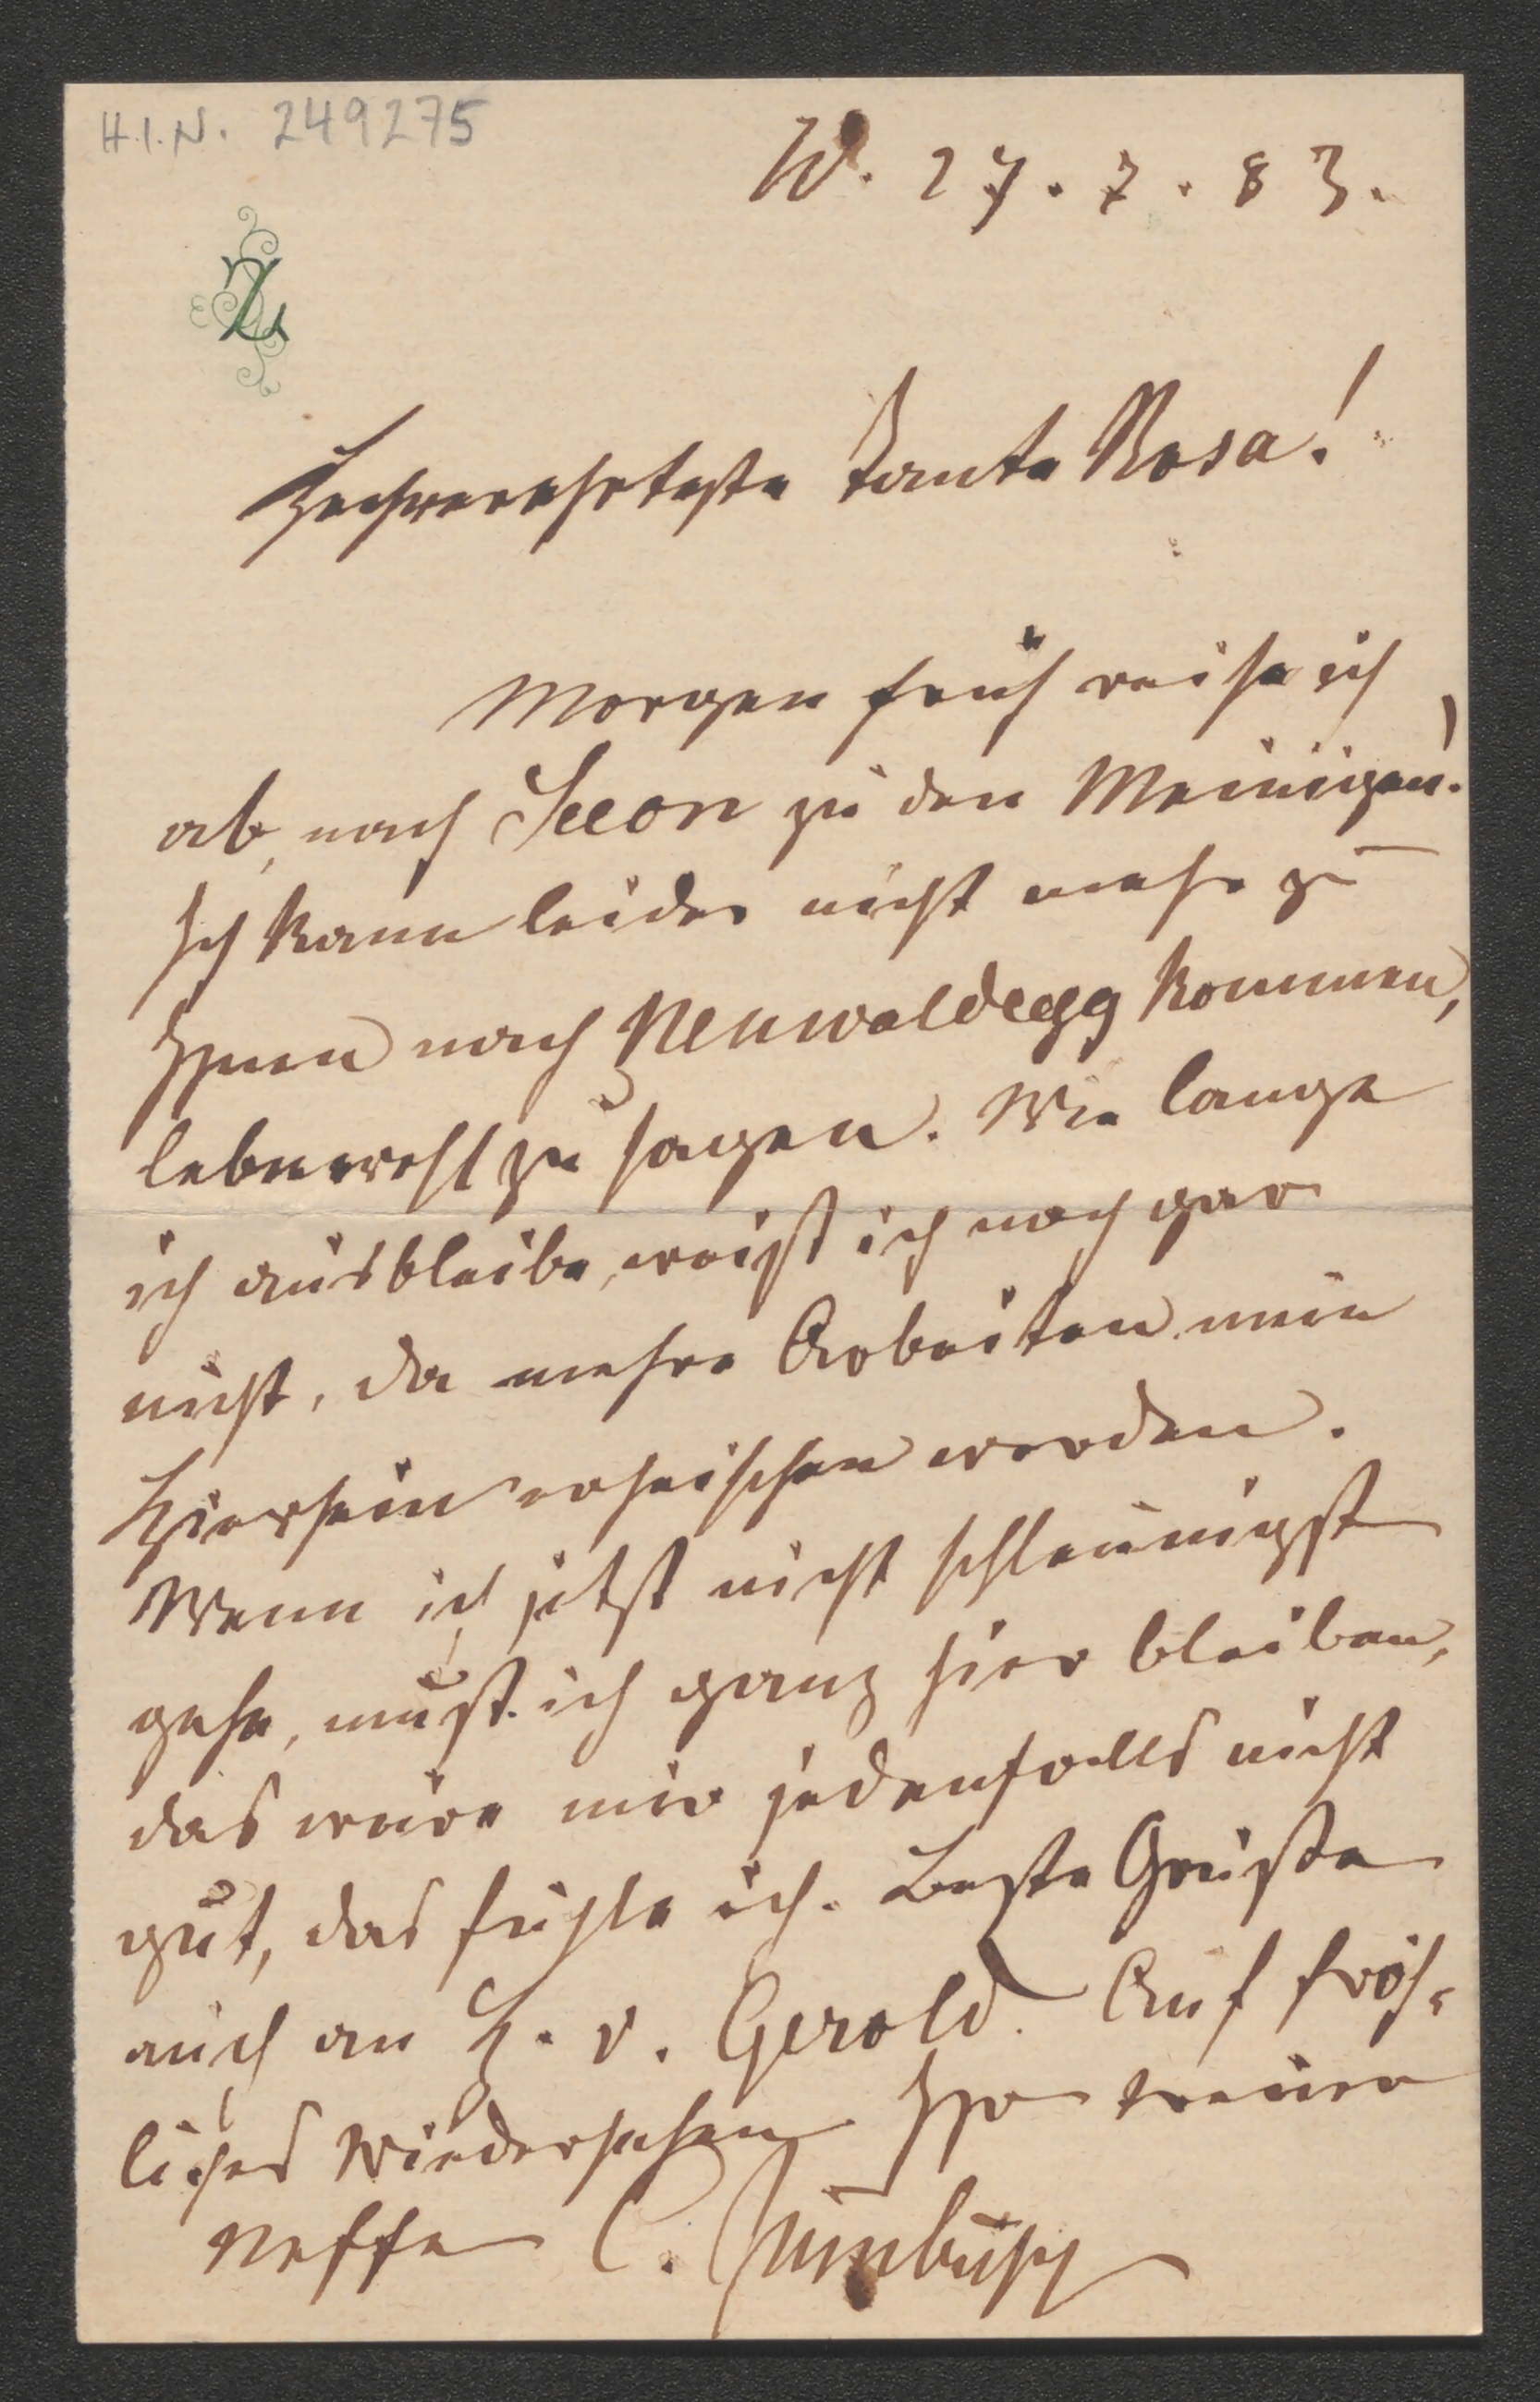 H.I.N. 249275
W. 27. 7. 83.
Z
Hochverehrteste Tante Rosa!
Morgen früh reise ich
ab, nach Seeon zu den Meinigen.
Ich kann leider nicht mehr zu
Ihnen nach Neuwaldegg kommen,
lebewohl zu sagen. Wie lange
ich ausbleibe, weiß ich noch gar
nicht, da mehre Arbeiten mein
Hiersein erheischen werden.
Wenn ich jetzt nicht schleunigst
gehe, muß ich ganz hier bleiben,
das wäre mir jedenfalls nicht
gut, das fühle ich. Beste Grüße
auch an H. v. Gerold. Auf fröh-
liches Wiedersehen Ihr treuer
Neffe C. Zumbusch